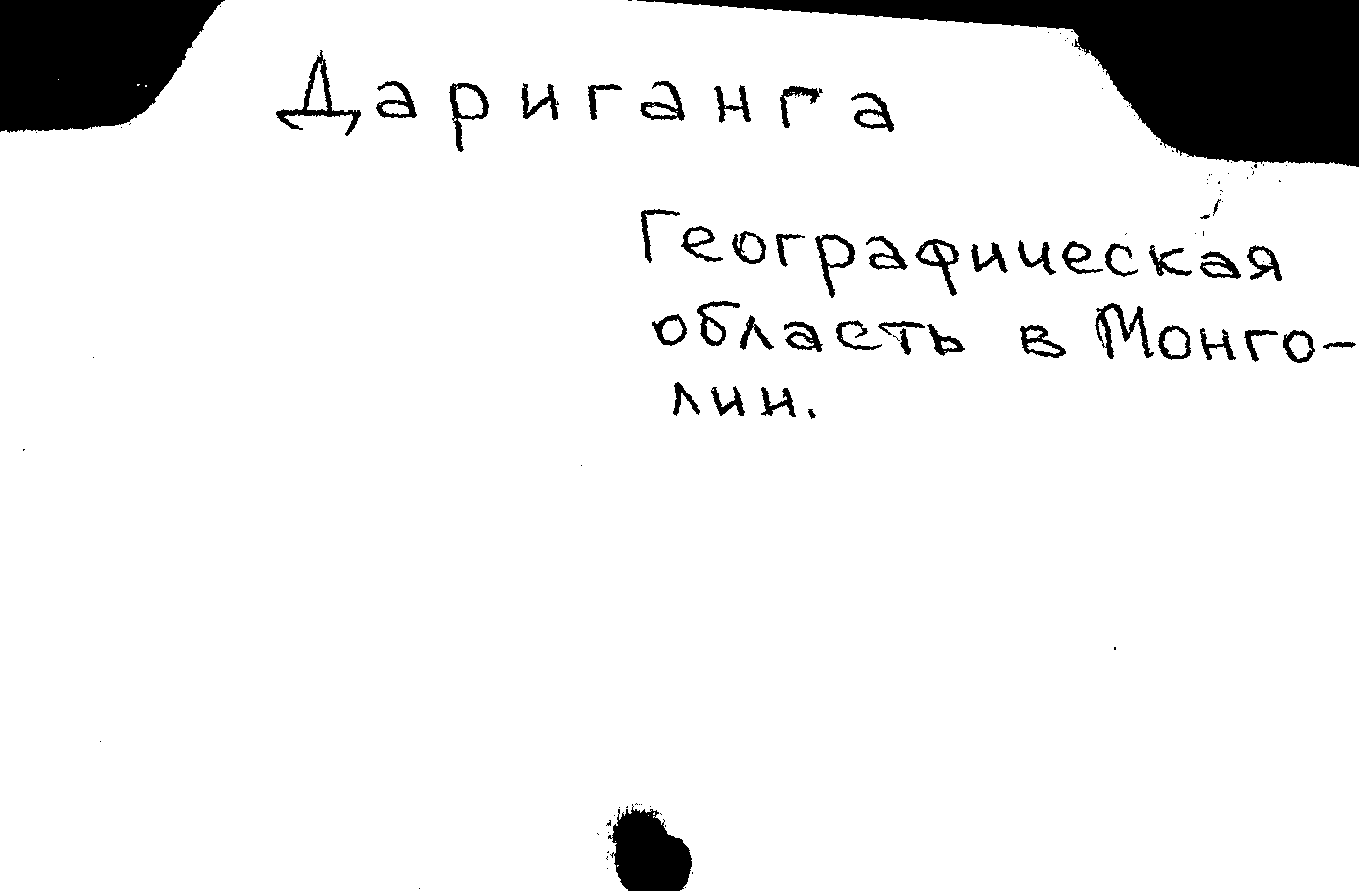 Дариганга
Географическая
область в Монго-
лии.